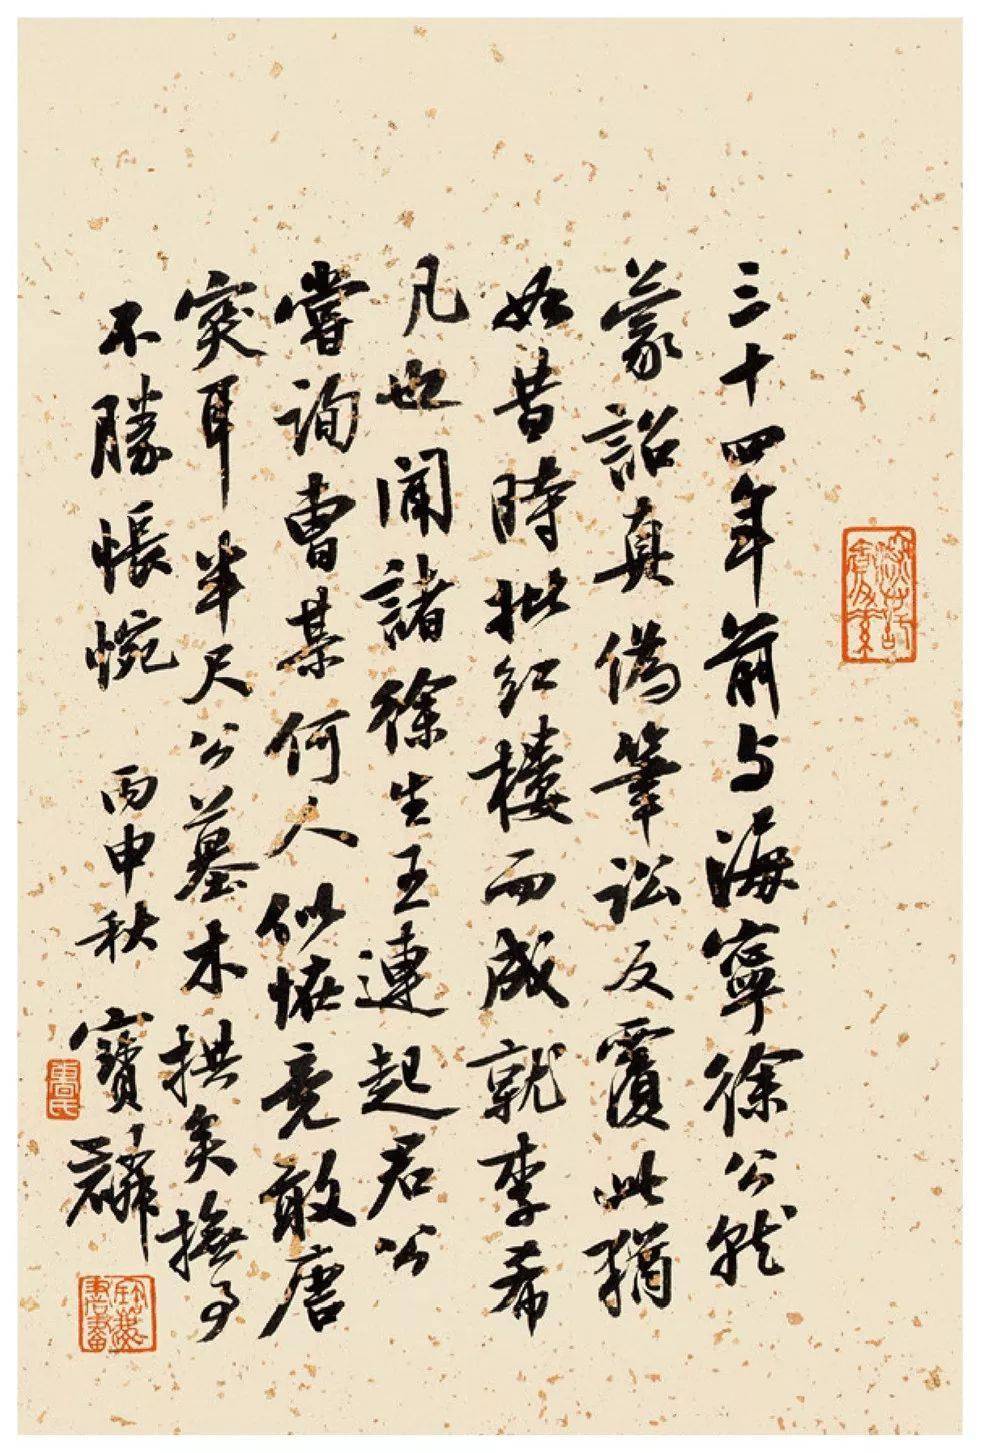 三十四年前与海寧徐公就
蒙詔真偽筆訟反覆此猶
如昔時批红樓而成就李希
凡也闻諸徐生王連起君公
嘗詢曹某何人似恠竟敢唐
突耳半尺公墓木拱矣撫事
不勝悵惋 丙申秋 寶麟
曹氏